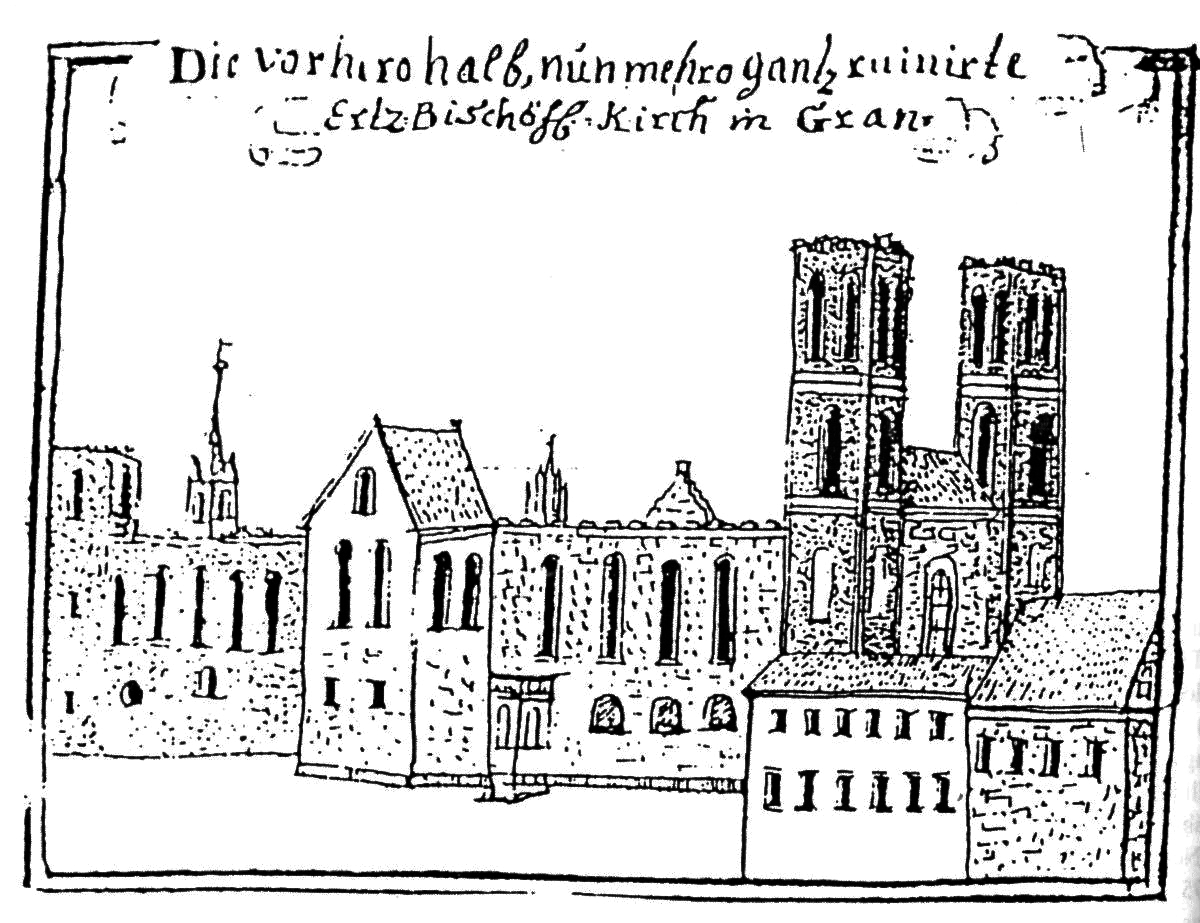 Die vorhiro halb, nún mehro gantz ruinirte
Ertz. Bischöff. Kirch in Gran.